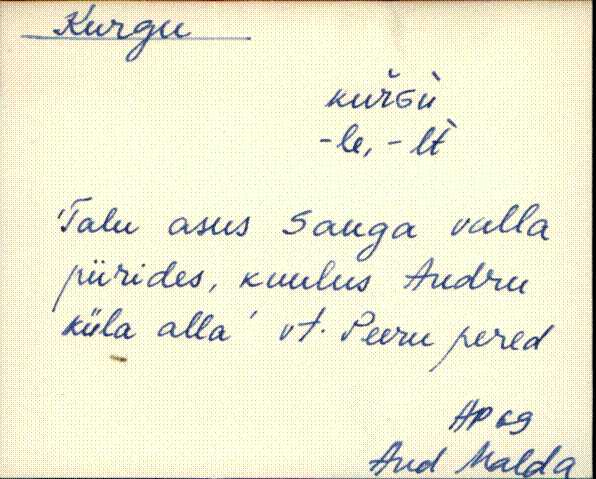 Kurgu
kuřGù
-le, -lt̀
'Talu asus Sauga valla
piirides, kuulus Andru
küla alla' vt. Peeru pered
AP 69
And Malda